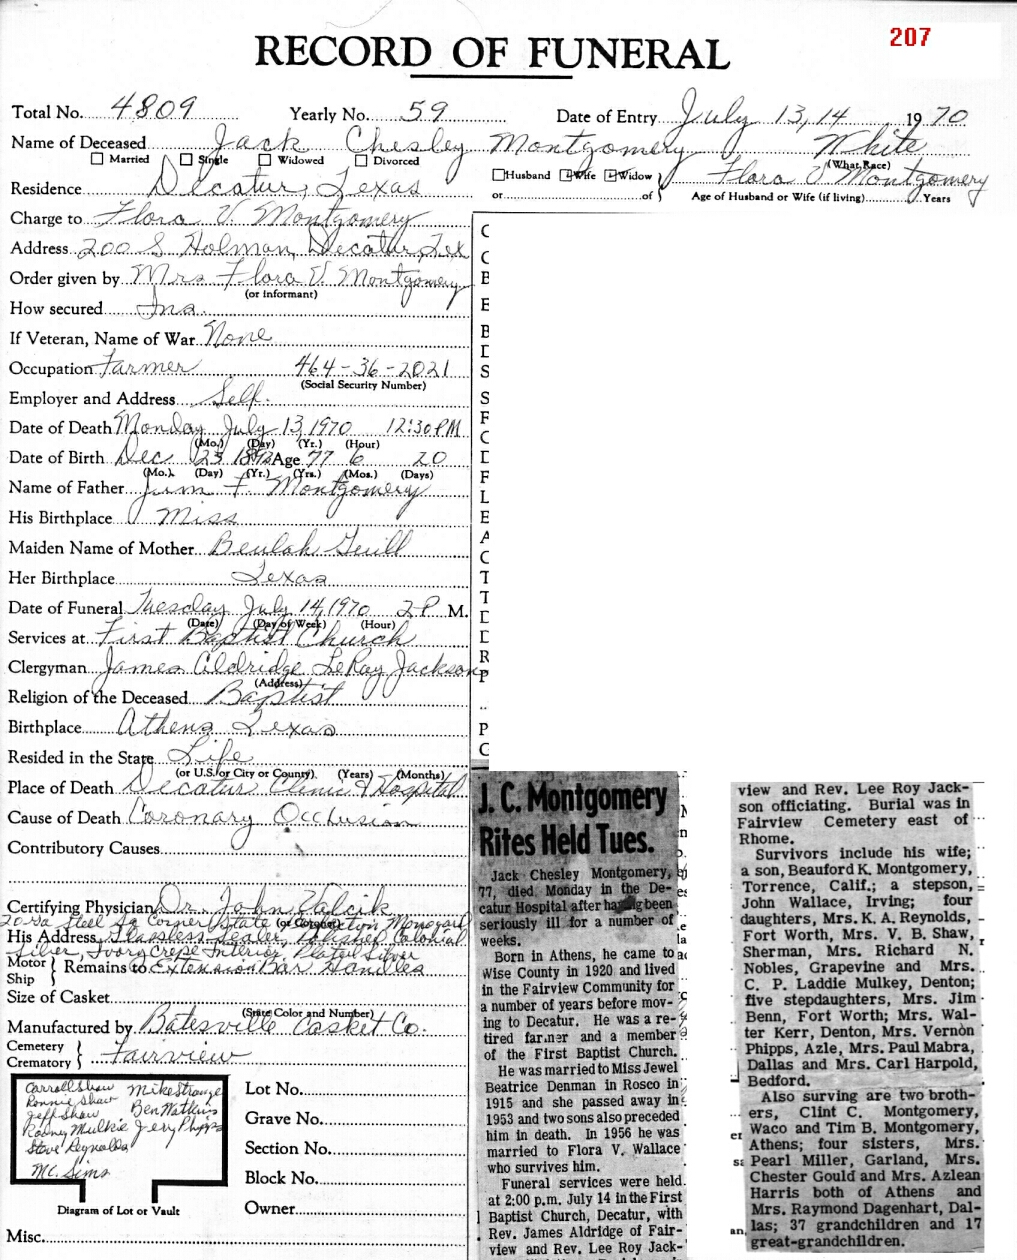 207
RECORD OF FUNERAL
Total No. 4809 Yearly No. 59 Date of Entry July 13, 14 1970
Name of Deceased Jack Chesley Montgomery White
Married Single Widowed Divorced (What Race)
Residence Decatur, Texas Husband Wife Widow Flora V Montgomery
or of Age of Husband or Wife (if living) Years
Charge to Flora V. Montgomery
Address 200 S Holman, Decatur, Tex
Order given by Mrs Flora V Montgomery
(or informant)
How secured Ins.
If Veteran, Name of War None
Occupation Farmer 464-36-2021
(Social Security Number)
Employer and Address Self.
Date of Death Monday July 13, 1970 12:30 PM
(Mo.) (Day) (Yr.) (Hour)
Date of Birth Dec 23 1892 Age 77 6 20
(Mo.) (Day) (Yr.) (Yrs.) (Mos.) (Days)
Name of Father Jim F. Montgomery
His Birthplace Miss
Maiden Name of Mother Beulah Guill
Her Birthplace Texas
Date of Funeral Tuesday July 14, 1970 2 P M.
(Date) (Day of Week) (Hour)
Services at First Baptist Church
Clergyman James Aldridge LeRay Jackson
(Address)
Religion of the Deceased Baptist
Birthplace Athens Texas
Resided in the State Life
(or U.S. or City or County) (Years) (Months)
Place of Death Decatur Clinic & Hospital
Cause of Death Coronary Occlusion
Contributory Causes
Certifying Physician Dr. John Valcik
(or Coroner)
20-Ga Steel Sq Corner State
His Address Sealer, Polished Colonial
Silver, Ivory Crepe Interior, Plated Silver
Motor Ship Remains to Extension Bar Handles
Size of Casket
(State Color and Number)
Manufactured by Batesville Casket Co.
Cemetery Crematory Fairview
Carroll Shaw Mike Strange
Ronnie Shaw Ben Watkins
Jeff Shaw Jery Phipps
Rodney Mulkie
Steve Reynolds
MC. Sims
Diagram of Lot or Vault
Lot No.
Grave No.
Section No.
Block No.
Owner
Misc.
J. C. Montgomery
Rites Held Tues.
Jack Chesley Montgomery,
77, died Monday in the De-
catur Hospital after having been
seriously ill for a number of
weeks.
Born in Athens, he came to
Wise County in 1920 and lived
in the Fairview Community for
a number of years before mov-
ing to Decatur. He was a re-
tired farmer and a member
of the First Baptist Church.
He was married to Miss Jewel
Beatrice Denman in Rosco in
1915 and she passed away in
1953 and two sons also preceded
him in death. In 1956 he was
married to Flora V. Wallace
who survives him.
Funeral services were held
at 2:00 p.m. July 14 in the First
Baptist Church, Decatur, with
Rev. James Aldridge of Fair-
view and Rev. Lee Roy Jack-
view and Rev. Lee Roy Jack-
son officiating. Burial was in
Fairview Cemetery east of
Rhome.
Survivors include his wife;
a son, Beauford K. Montgomery,
Torrence, Calif.; a stepson,
John Wallace, Irving; four
daughters, Mrs. K. A. Reynolds,
Fort Worth, Mrs. V. B. Shaw,
Sherman, Mrs. Richard N.
Nobles, Grapevine and Mrs.
C. P. Laddie Mulkey, Denton;
five stepdaughters, Mrs. Jim
Benn, Fort Worth; Mrs. Wal-
ter Kerr, Denton, Mrs. Vernon
Phipps, Azle, Mrs. Paul Mabra,
Dallas and Mrs. Carl Harpold,
Bedford.
Also surving are two broth-
ers, Clint C. Montgomery,
Waco and Tim B. Montgomery,
Athens; four sisters, Mrs.
Pearl Miller, Garland, Mrs.
Chester Gould and Mrs. Azlean
Harris both of Athens and
Mrs. Raymond Dagenhart, Dal-
las; 37 grandchildren and 17
great-grandchildren.